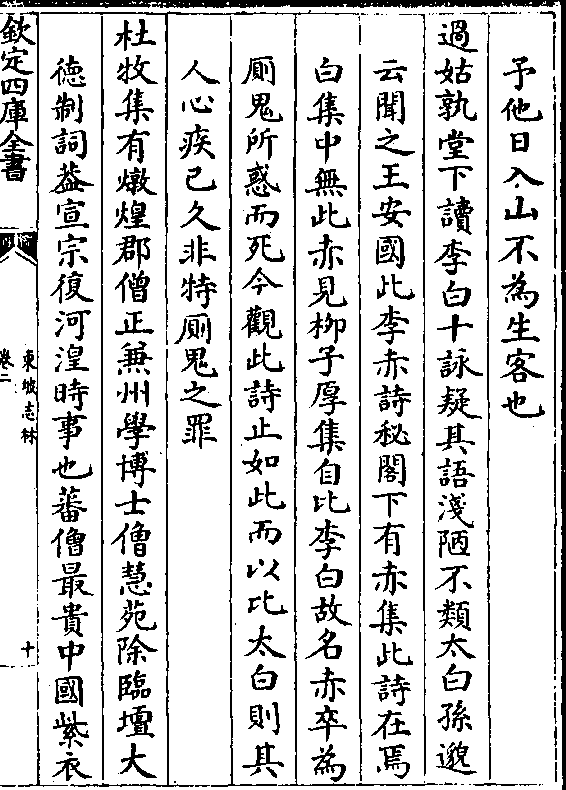 予他日入山不為生客也
過姑孰堂下讀李白十詠疑其語淺陋不類太白孫邈
云聞之王安國此李赤詩秘閣下有赤集此詩在焉
白集中無此赤見栁子厚集自比李白故名赤卒為
厠鬼所惑而死今觀此詩止如此而以比太白則其
人心疾已久非特厠鬼之罪
杜牧集有燉煌郡僧正兼州學博士僧慧苑除臨壇大
徳制詞葢宣宗復河湟時事也蕃僧最貴中國紫衣
欽定四庫全書
東坡志林
卷二
十